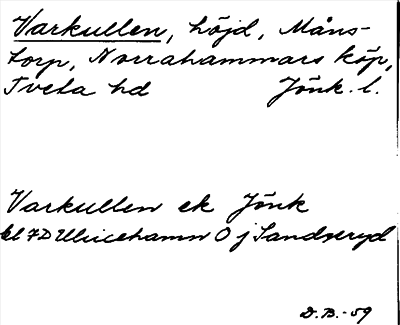 Varkullen, höjd, Måns-
torp, Norrahammars köp,
Tveta hd Jönk. l.
Varkullen ek Jönk
bl 7D Ulricehamn O j Sandseryd
D.B.-59